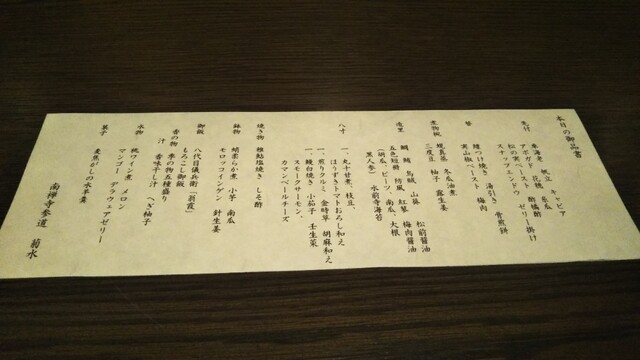 本日の御品書
先付
車海老 帆立 キャビア
アボガド 花穂 冬瓜
松の実ペースト 酢橘酢
スナップエンドウ ゼリー掛け
替
鱧つけ焼き 湯引き 骨煎餅
実山椒ペースト 梅肉
煮物椀
冬瓜油煮
三度豆 柚子 露生姜
造里
鯛 鮪 烏賊 山葵 松前醤油
五色短冊 防風 紅蓼 梅肉醤油
(胡瓜、ビーツ、南瓜、大根
黒人参) 水前寺海苔
八寸
一、丸十甘煮、枝豆、
ほうずきトマトおろし和え
一、煎りグルミ 金時草 胡麻和え
一、鰻台焼き 小茄子 壬生菜
スモークサーモン、
カマンベールチーズ
焼き物 稚鮎塩焼き しそ酢
鉢物
蛸柔らか煮 小芋 南瓜
モロッコインゲン 針生姜
御飯
八代目儀兵衛「翁霞」
もろこし御飯
香の物 季の物五種盛り
汁 香味干し汁 へぎ柚子
水物
桃ワイン煮 メロン
マンゴー デラウェアゼリー
菓子 麦焦がしの水羊羹
南禅寺参道 菊水